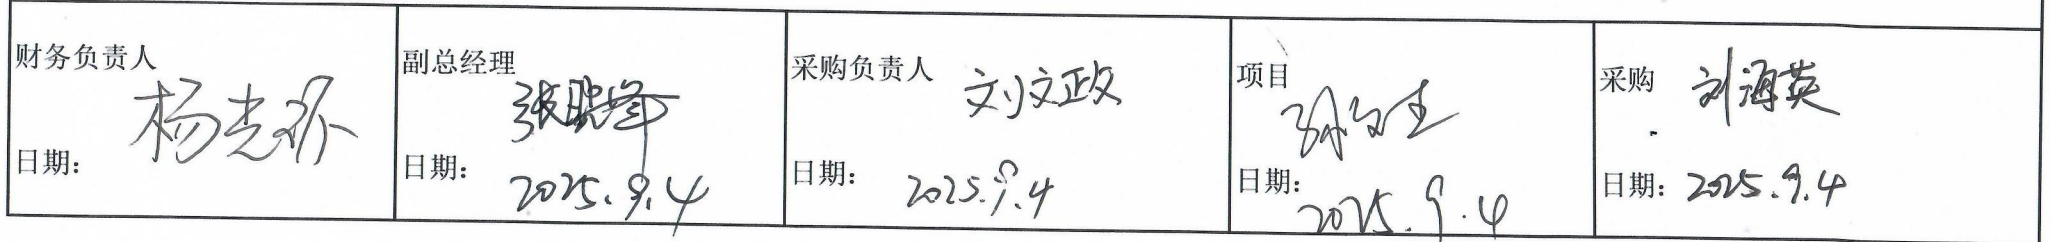 财务负责人
杨志祁
日期:
副总经理
张晓峰
日期: 2025.9.4
采购负责人 刘文政
日期: 2025.9.4
项目
日期: 2025.9.4
采购 刘海英
日期: 2025.9.4